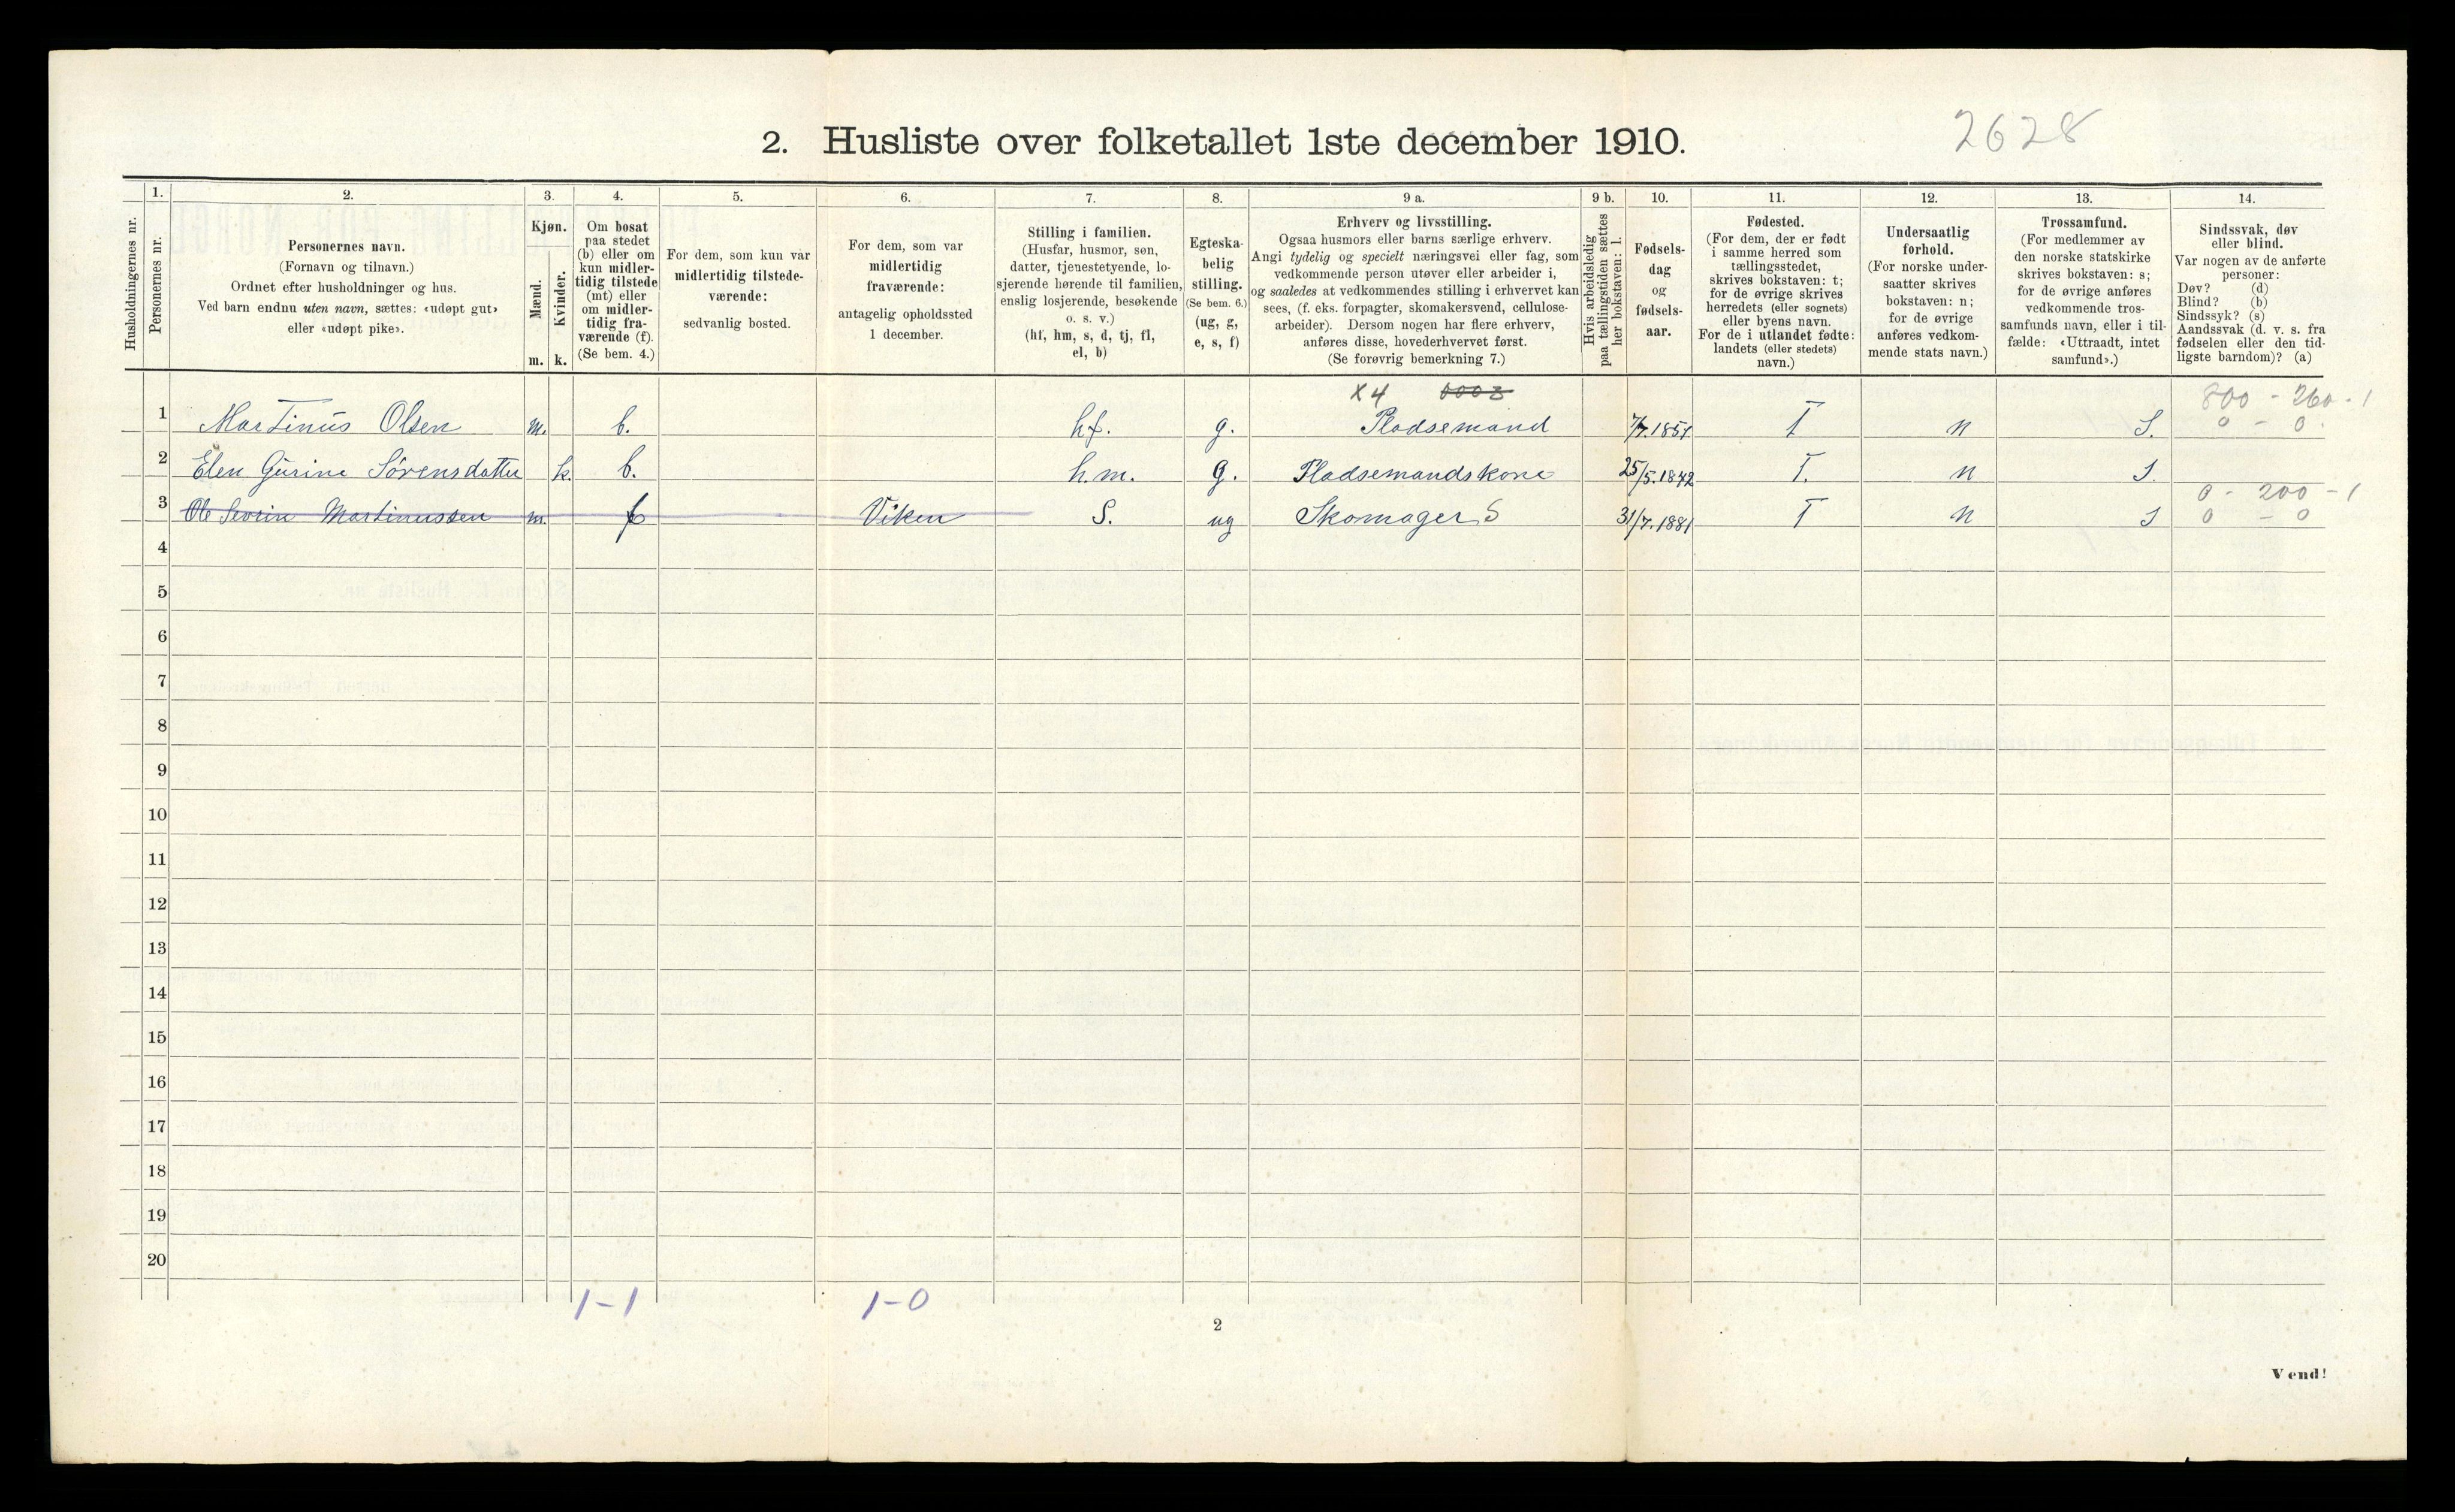 2. Husliste over folketallet 1ste december 1910.
2628
Husholdningernes nr.
1.
Personernes nr.
2.
Personernes navn.
(Fornavn og tilnavn.)
Ordnet efter husholdninger og hus.
Ved barn endnu uten navn, sættes: «udøpt gut»
eller «udøpt pike».
3.
Kjøn.
Mænd.
Kvinder.
m. k.
4.
Om bosat
paa stedet
(b) eller om
kun midler-
tidig tilstede
(mt) eller
om midler-
tidig fra-
værende (f).
(Se bem. 4.)
5.
For dem, som kun var
midlertidig tilstede-
værende:
sedvanlig bosted.
6.
For dem, som var
midlertidig
fraværende:
antagelig opholdssted
1 december.
7.
Stilling i familien.
(Husfar, husmor, søn,
datter, tjenestetyende, lo-
sjerende hørende til familien,
enslig losjerende, besøkende
o. s. v.)
(hf, hm, s, d, tj, fl,
el, b)
8.
Egteska-
belig
stilling.
(Se bem. 6.)
(ug, g,
e, s, f)
9 a.
Erhverv og livsstilling.
Ogsaa husmors eller barns særlige erhverv.
Angi tydelig og specielt næringsvei eller fag, som
vedkommende person utøver eller arbeider i,
og saaledes at vedkommendes stilling i erhvervet kan
sees, (f. eks. forpagter, skomakersvend, cellulose-
arbeider). Dersom nogen har flere erhverv,
anføres disse, hovederhvervet først.
(Se forøvrig bemerkning 7.)
9 b.
Hvis arbeidsledig
paa tællingstiden sættes
her bokstaven: l.
10.
Fødsels-
dag
og
fødsels-
aar.
11.
Fødested.
(For dem, der er født
i samme herred som
tællingsstedet,
skrives bokstaven: t;
for de øvrige skrives
herredets (eller sognets)
eller byens navn.
For de i utlandet fødte:
landets (eller stedets)
navn.)
12.
Undersaatlig
forhold.
(For norske under-
saatter skrives
bokstaven: n;
for de øvrige
anføres vedkom-
mende stats navn.)
13.
Trossamfund.
(For medlemmer av
den norske statskirke
skrives bokstaven: s;
for de øvrige anføres
vedkommende tros-
samfunds navn, eller i til-
fælde: «Uttraadt, intet
samfund».)
14.
Sindssvak, døv
eller blind.
Var nogen av de anførte
personer:
Døv? (d)
Blind? (b)
Sindssyk? (s)
Aandssvak (d. v. s. fra
fødselen eller den tid-
ligste barndom)? (a)
X4 800 - 260 - 1
1 Martinus Olsen m. b. hf. g. Pladsemand T n S. 0 - 0
2 Elen Gurine Sörensdatter k. b. h.m. g. Pladsemandskone 25/5.1842 T. n S
0 - 200 - 1
3 Ole Sevrin Martinussen m. f Viken S. ug Skomager S 31/7.1881 T n S 0 - 0
4
5
6
7
8
9
10
11
12
13
14
15
16
17
18
19
20
1-1 1-0
2
Vend!